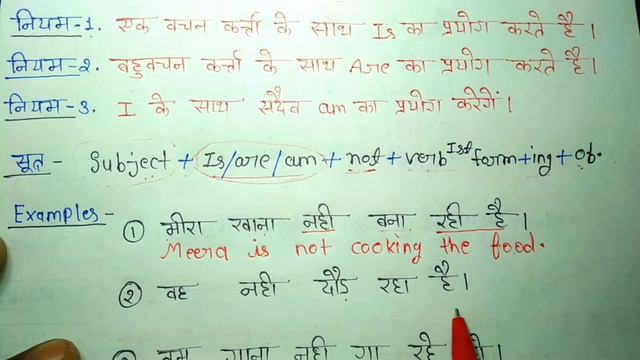 नियम-1. एक वचन कर्त्ता के साथ Is का प्रयोग करते है।
नियम-2. बहुवचन कर्त्ता के साथ Are का प्रयोग करते है।
नियम-3. I के साथ सदैव am का प्रयोग करेगें।
सूत्र - Subject + Is/are/am + not + verb Ist form + ing + ob.
Examples -
① मीरा खाना नही बना रही है।
Meera is not cooking the food.
② वह नही दौड़ रहा है।
गाना नही गा रहे